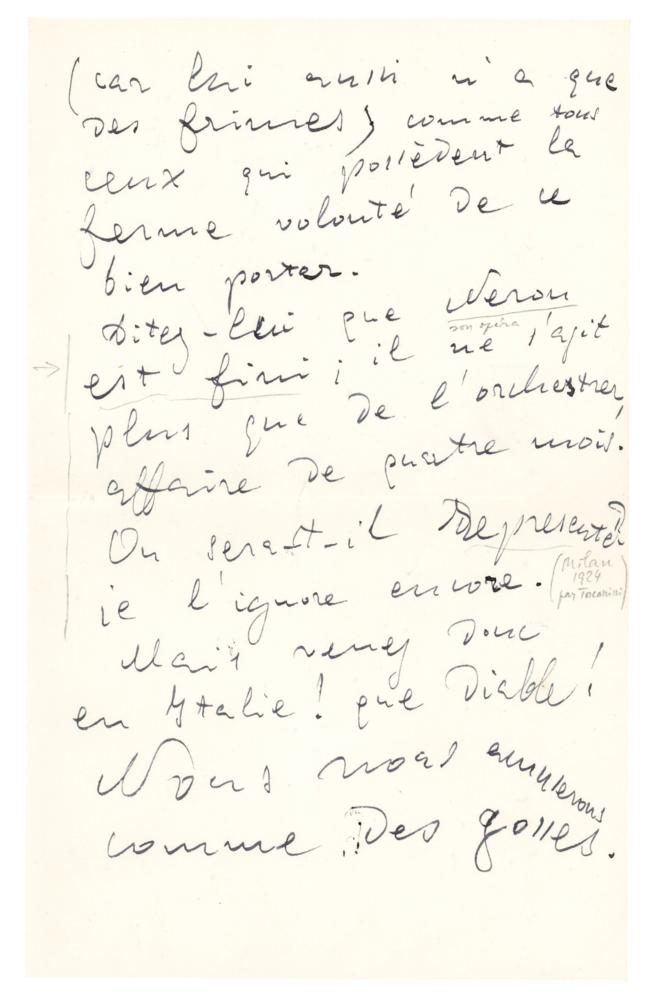 (car lui aussi n'a que
des frimes) comme tous
ceux qui possèdent la
ferme volonté de se
bien porter.
Dites-lui que Neron
son opéra
est fini; il ne s'agit
plus que de l'orchestrer,
affaire de quatre mois.
Ou sera-t-il représenté?
je l'ignore encore.
(Milan
1924
par Toscanini)
Mais venez donc
en Italie! que Diable!
Nous nous amuserons
comme des gosses.